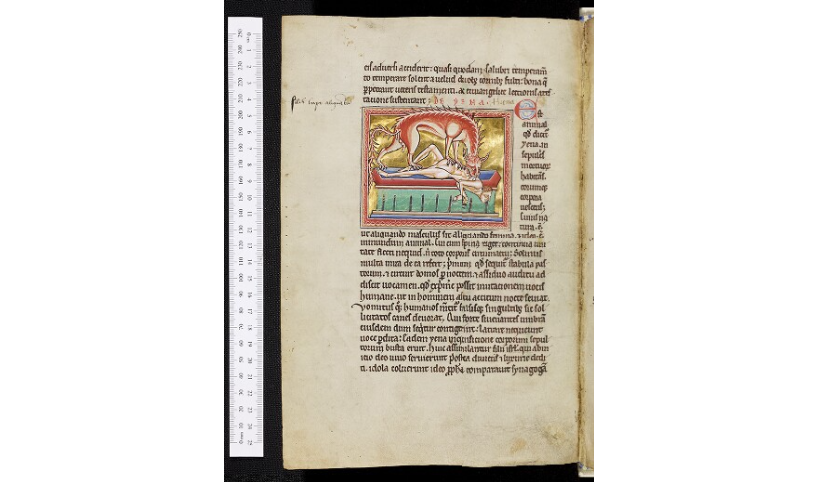 eis aduersi acciderit: quasi quodam salubri temperam̄
to temperate solent a uelud duoby corniby fulti: bona q̄
ꝑpetrant ueteris testamenti. ac euangelice lectionis
tatione sustentant
DE YENA. Hiena
Est
animal
qđ dicit̄
yena. in
sepulcris
mortuoꝝ
habitās.
eorumq;
corpora
uescens.
cuius na
tura. ē
ut aliquando masculus sit aliquando femina.
inmundum animal. Cui cum spina riget: continua uni
tate flecti nequid. n̄ toto corporis circumactu. Solinus
multa mira de ea refert; primum qđ sequit̄ stabula pas
torum. et circuit domos ꝑ noctem. et assiduo auditu ad
discit uocamen. qđ exprimere possit imitationem uocis
humane. ut in hominem astu accitum nocte seuiat.
Vomitus q; humanos mētit̄ falsisq; singultiby sic sol
licitatos canes deuorat. Qui forte si uenantes umbrā
eiusdem dum seq̄tur contigerint: latrare nequeunt
uoce perdita: Eadem yena inquisitione corporum sepul
torum busta eruit. huic assimilantur filii isrl. qui ab in
icio deo uiuo seruierunt postea diuitiis et luxurie dedi
ti. idola coluerunt. ideo ꝓpha comparauit synagogā